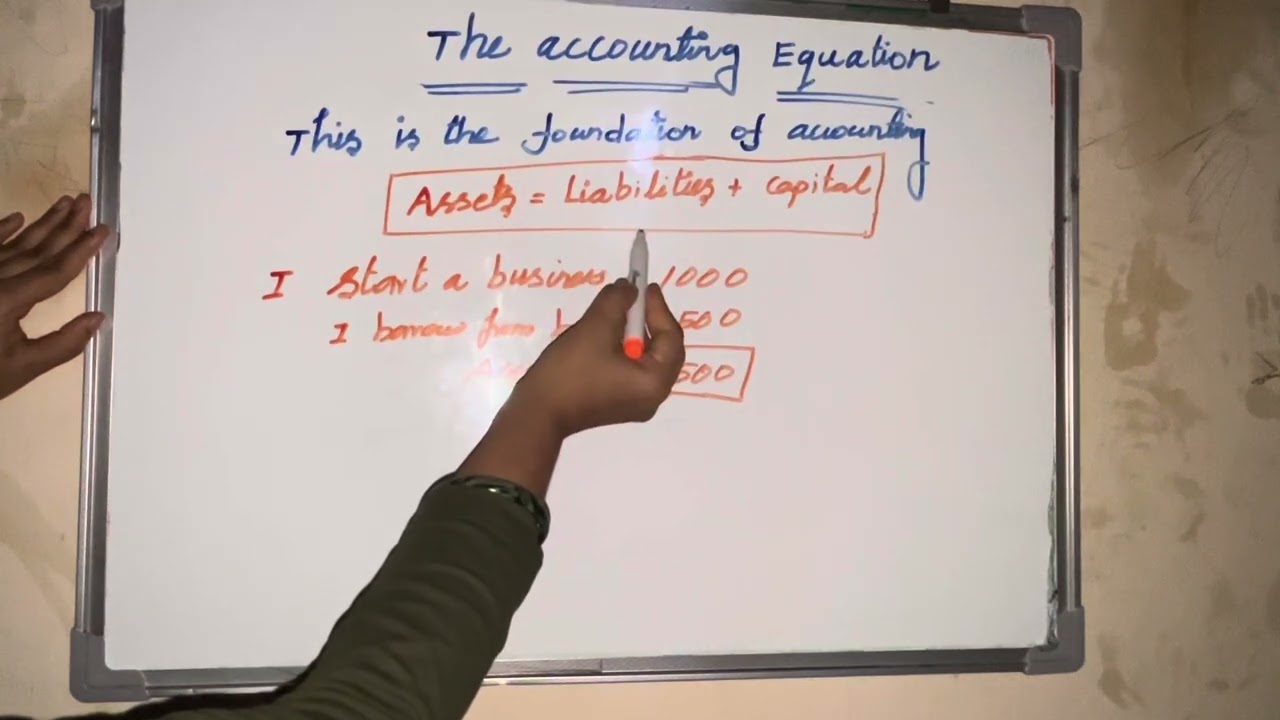 The accounting Equation
This is the foundation of accounting
Assets = Liabilities + capital
I start a business 1000
I borrow from 500
500